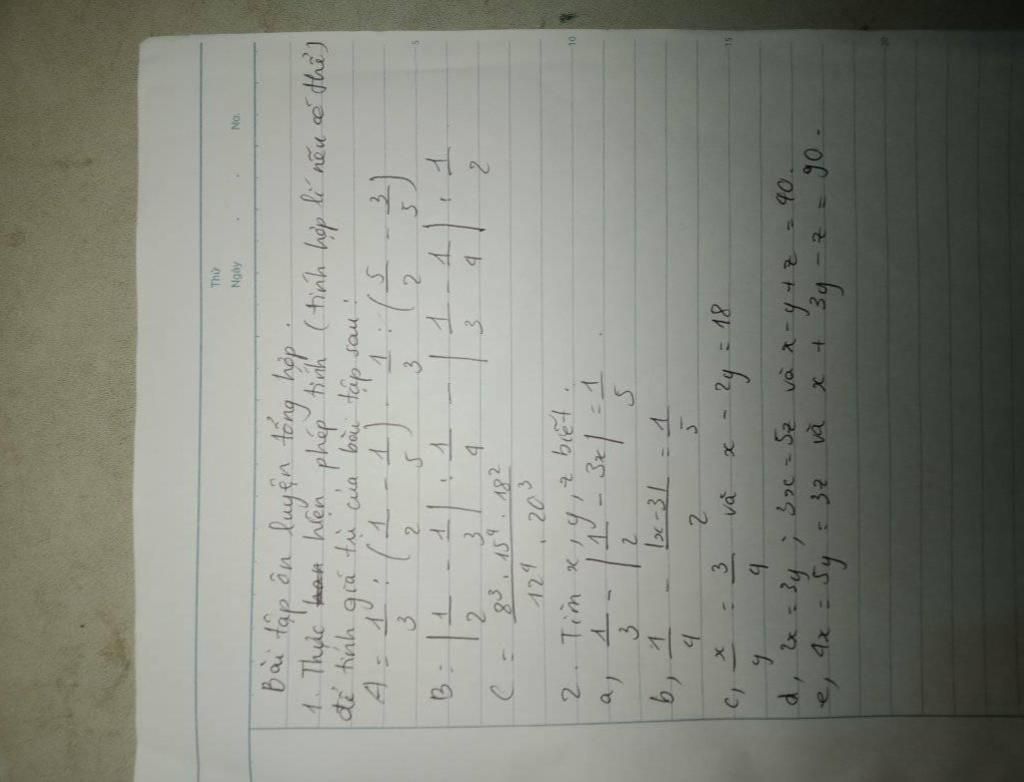 Thứ
Ngày . . No.
Bài tập ôn luyện tổng hợp.
1. Thực hiện phép tính (tính hợp lí nếu có thể)
để tính giá trị của bài tập sau:
A = 1/3 : (1/2 - 1/5) - 1/3 : (5/2 - 3/5)
B = |1/2 - 1/3| : 1/4 - |1/3 - 1/4| : 1/2
C = 8³ . 15⁴ . 18² / 12⁴ . 20³
2. Tìm x, y, z biết.
a, 1/3 - |1/2 - 3x| = 1/5 .
b, 1/4 - |x-3|/2 = 1/5
c, x/y = 3/4 và x - 2y = 18
d, 2x = 3y ; 3x = 5z và x - y + z = 90.
e, 4x = 5y = 3z và x + 3y - z = 90.
5
10
15
20